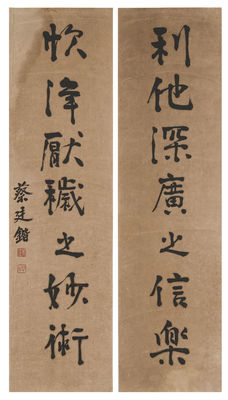 利他深廣之信樂
忻淨厭穢之妙術
蔡廷鍇